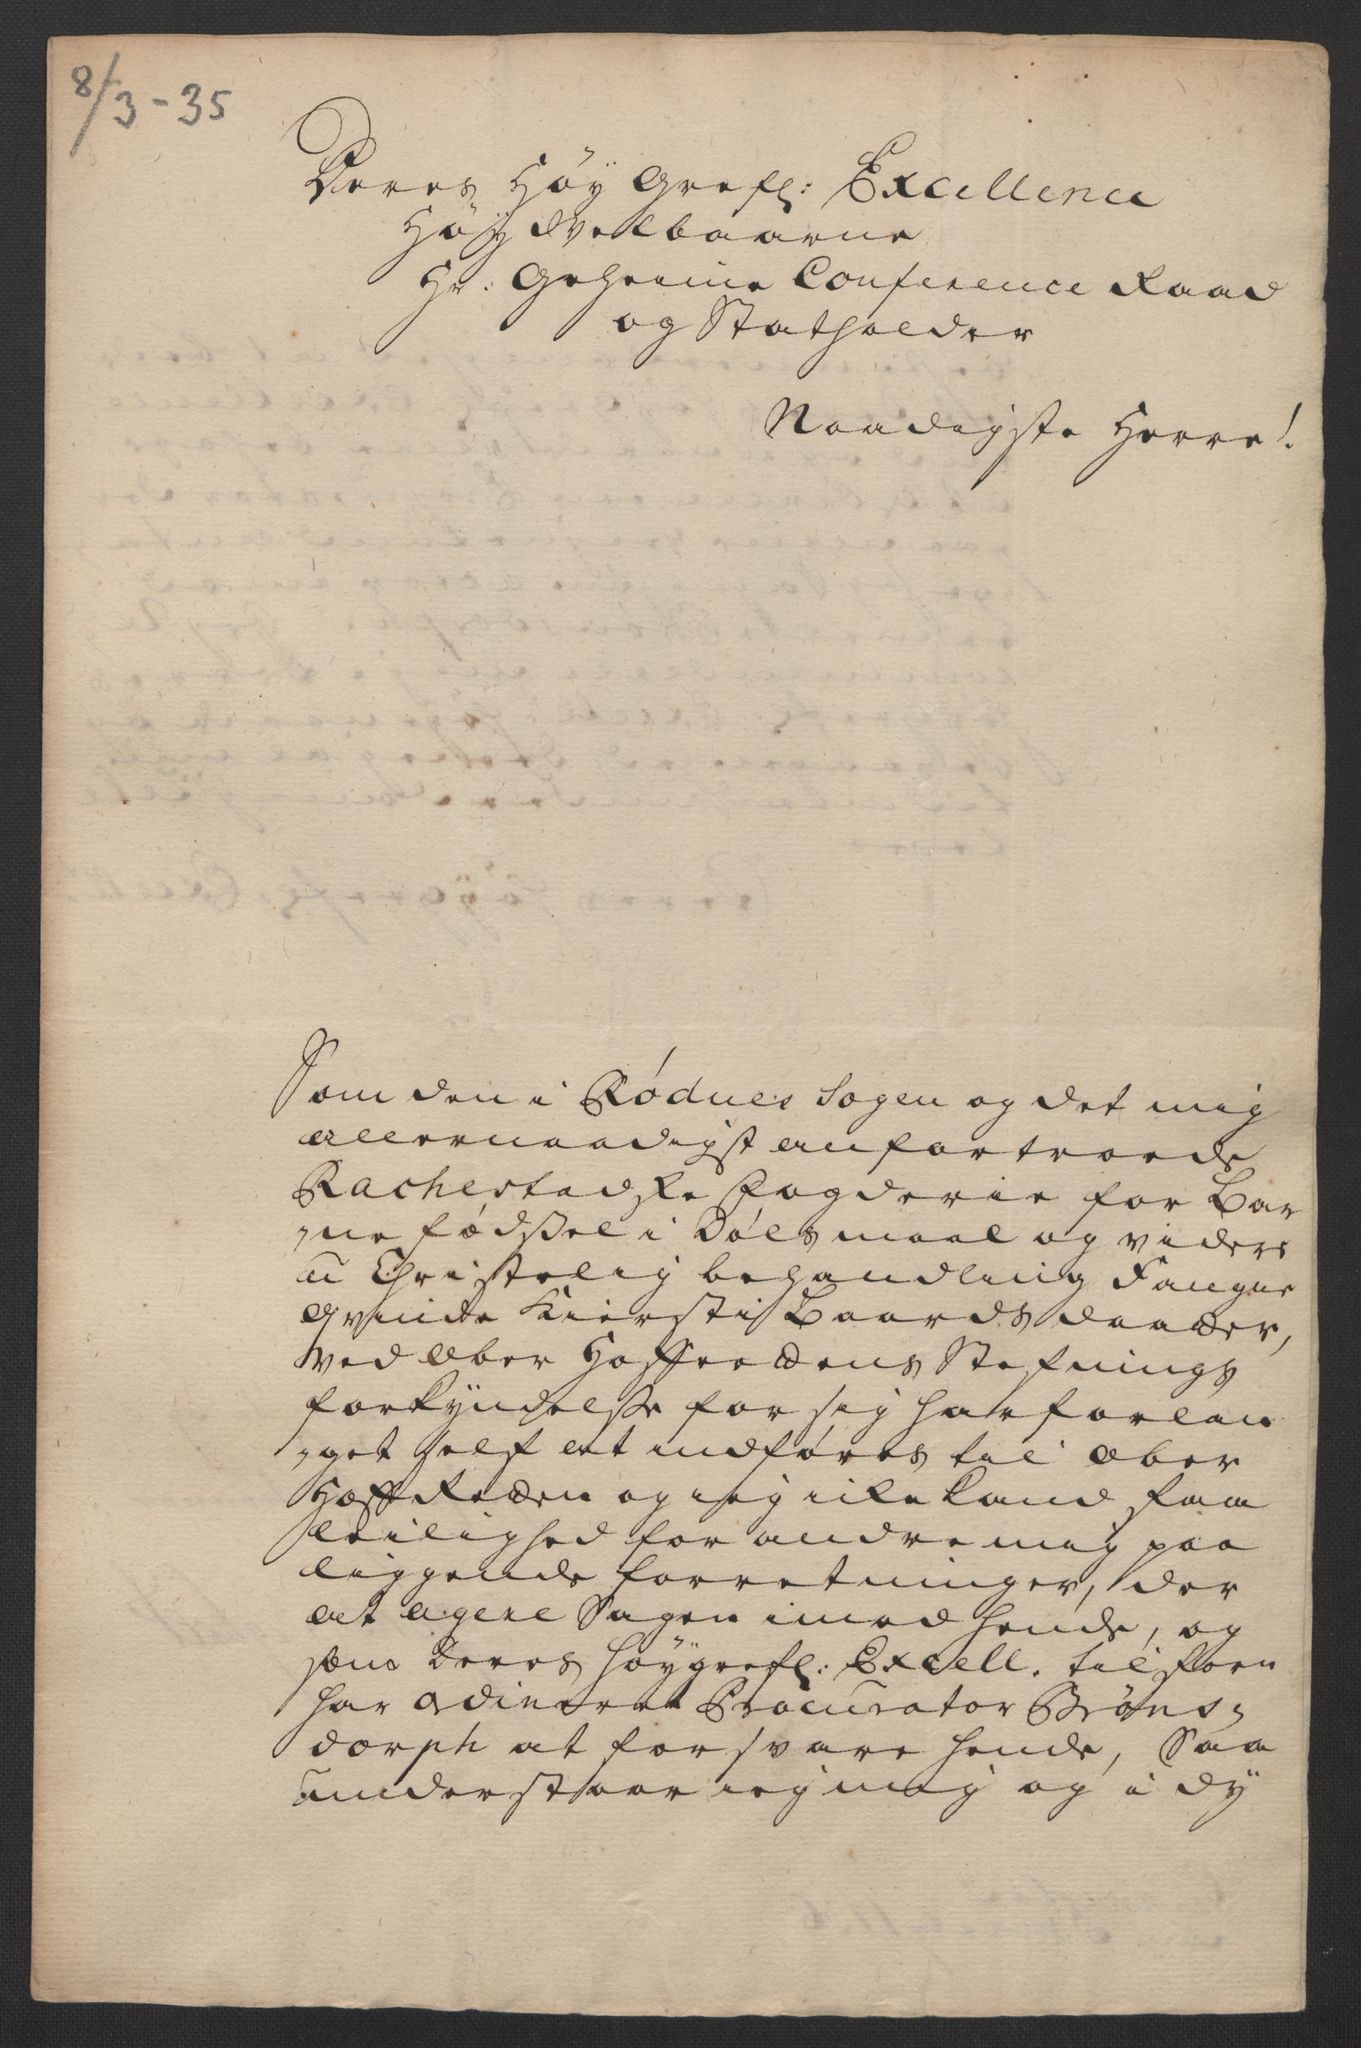 8/3-35
Deres Høy Grefl: Excellence
Høyædvelbaarne
Hr: Geheime Conference Raad
og Statholder
Naadigste Herre!
Som den i Rødnes Sogen og det mig
allernaadigst anfortroede
Rachestadske Fogderie for Bar
„ne fødssel i Dølsmaal og videre
u Christelig behandling Fangne
qvinde Kiersti Baardsdaatter,
ved Ober HoffRettens Stefnings
forkyndelsse for sig har forlan
„get self at indføres til Ober
HoffRetten og ieg icke kand faa
leilighed for andre mig paa
liggende forretninger, der
at agere Sagen imod hende, og
som Deres Høygrefl: Excell. tilforn
har ordineret Procurator Brøns„
dorph at forsvare hende, Saa
understaar ieg mig og i dy